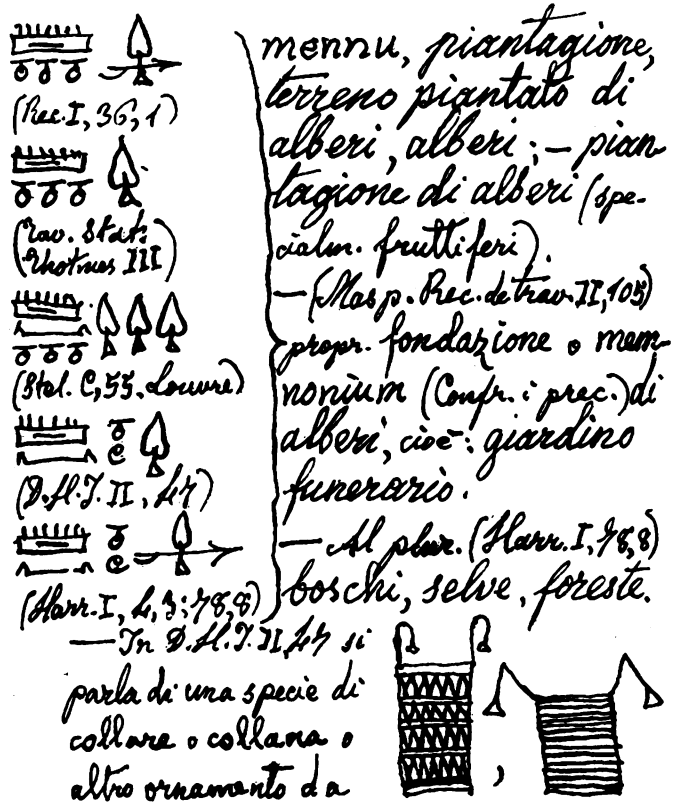 (Rec. I, 36, 1)
(Rav. Stat.
Thotmes III)
(Stel. C, 55. Louvre)
(D. H. I. II, 47)
(Harr. I, 4, 3; 78, 8)
mennu, piantagione,
terreno piantato di
alberi, alberi; — pian-
tagione di alberi (spe-
cialm. fruttiferi).
— (Masp. Rec. de trav. II, 105)
propr. fondazione o mem-
nonium (Confr. i prec.) di
alberi, cioè: giardino
funerario.
— Al plur. (Harr. I, 78, 8)
boschi, selve, foreste.
— In D. H. I. II, 47 si
parla di una specie di
collare o collana o
altro ornamento da